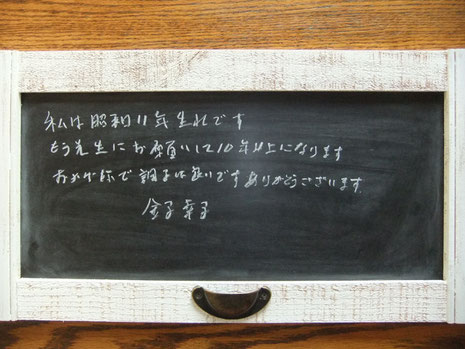 私は昭和11年生れです
もう先生にお願いして10年以上になります
おかげ様で調子は良いですありがとうございます。
金子幸子